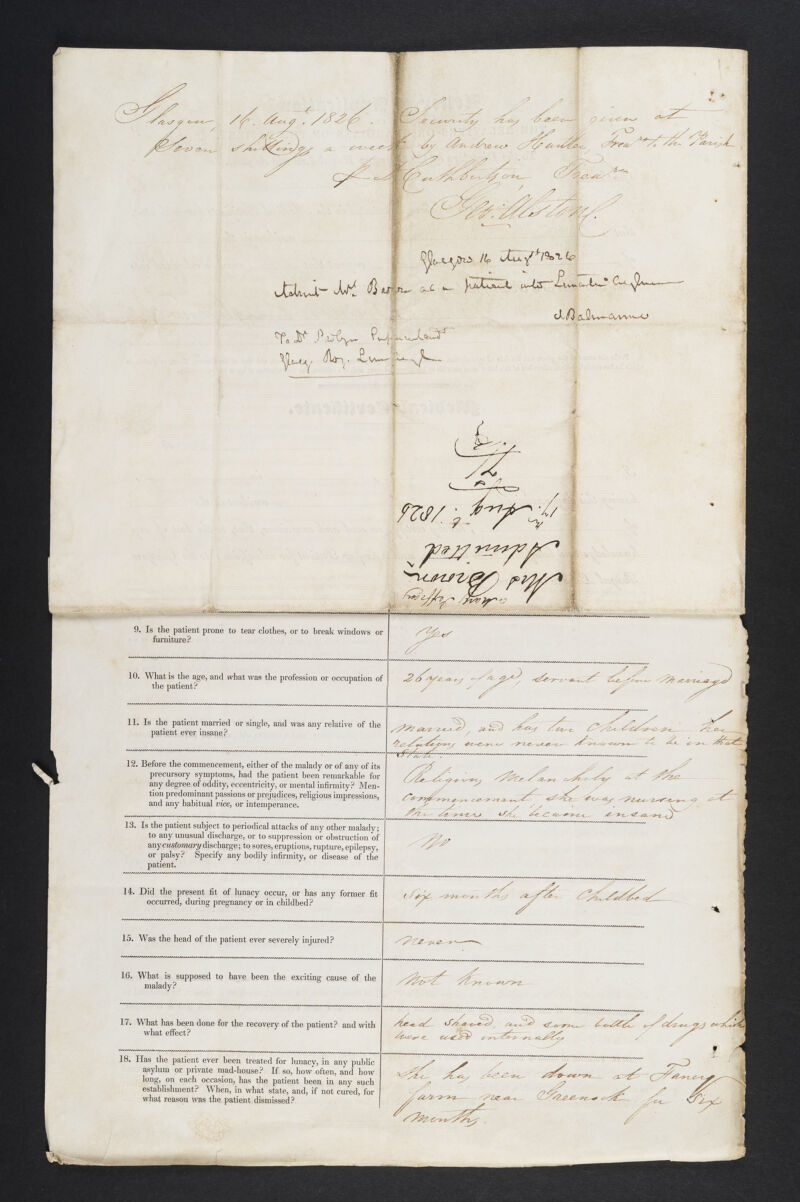 Glasgow, 16 Augt. 1826. Security has been given at
Eleven shillings a week by Andrew Hunter, Trear. to the Parish
Cuthbertson Trearr.
Geo: Alston C.
Glasgow 16 Augt 1826
Admit Mrs Brown as a patient into Lunatic Asylum
J Balmanno
To Dr
Glasg. Roy. Lun
Mary Jeffrey
Mrs Brown
Admitted
17th Augt. 1826
9. Is the patient prone to tear clothes, or to break windows or
furniture?
Yes
10. What is the age, and what was the profession or occupation of
the patient?
26 years of age, servant before marriage
11. Is the patient married or single, and was any relative of the
patient ever insane?
married, and has two children her
relations were never known to be in that
state.
12. Before the commencement, either of the malady or of any of its
precursory symptoms, had the patient been remarkable for
any degree of oddity, eccentricity, or mental infirmity? Men-
tion predominant passions or prejudices, religious impressions,
and any habitual vice, or intemperance.
Religious Melancholy at the
commencement she was nursing at
the time she became insane
13. Is the patient subject to periodical attacks of any other malady;
to any unusual discharge, or to suppression or obstruction of
any customary discharge; to sores, eruptions, rupture, epilepsy,
or palsy? Specify any bodily infirmity, or disease of the
patient.
No
14. Did the present fit of lunacy occur, or has any former fit
occurred, during pregnancy or in childbed?
Six months after Childbed
15. Was the head of the patient ever severely injured?
never
16. What is supposed to have been the exciting cause of the
malady?
Not Known
17. What has been done for the recovery of the patient? and with
what effect?
head shaved, and some bottle of drugs which
were used internally
18. Has the patient ever been treated for lunacy, in any public
asylum or private mad-house? If so, how often, and how
long, on each occasion, has the patient been in any such
establishment? When, in what state, and, if not cured, for
what reason was the patient dismissed?
She has been down at
farm near Greenock for Six
months.